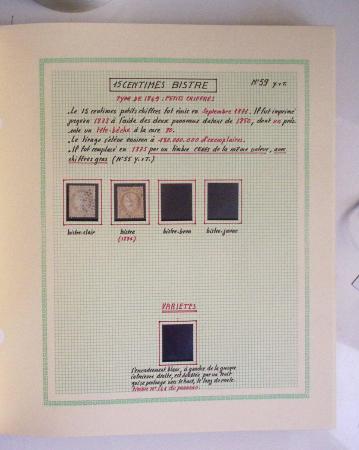 15 CENTIMES BISTRE
N°59 Y.&T.
TYPE DE 1849 : PETITS CHIFFRES
. Le 15 centimes petits chiffres fut émis en Septembre 1871. Il fut imprimé
à l'aide des deux panneaux datant de 1850, dont un
un tête-bêche à la case 80.
. Le tirage s'élève environ à exemplaires.
. Il fut remplacé en 1875 par un timbre de la même valeur, avec
chiffres gros (N°55 Y.&T.)
bistre-clair
bistre
bistre-brun
bistre-jaune
VARIÉTÉS
L'encadrement blanc, à gauche de la grecque
inférieure droite, est par un trait
qui se prolonge vers le haut, le long du
du panneau.